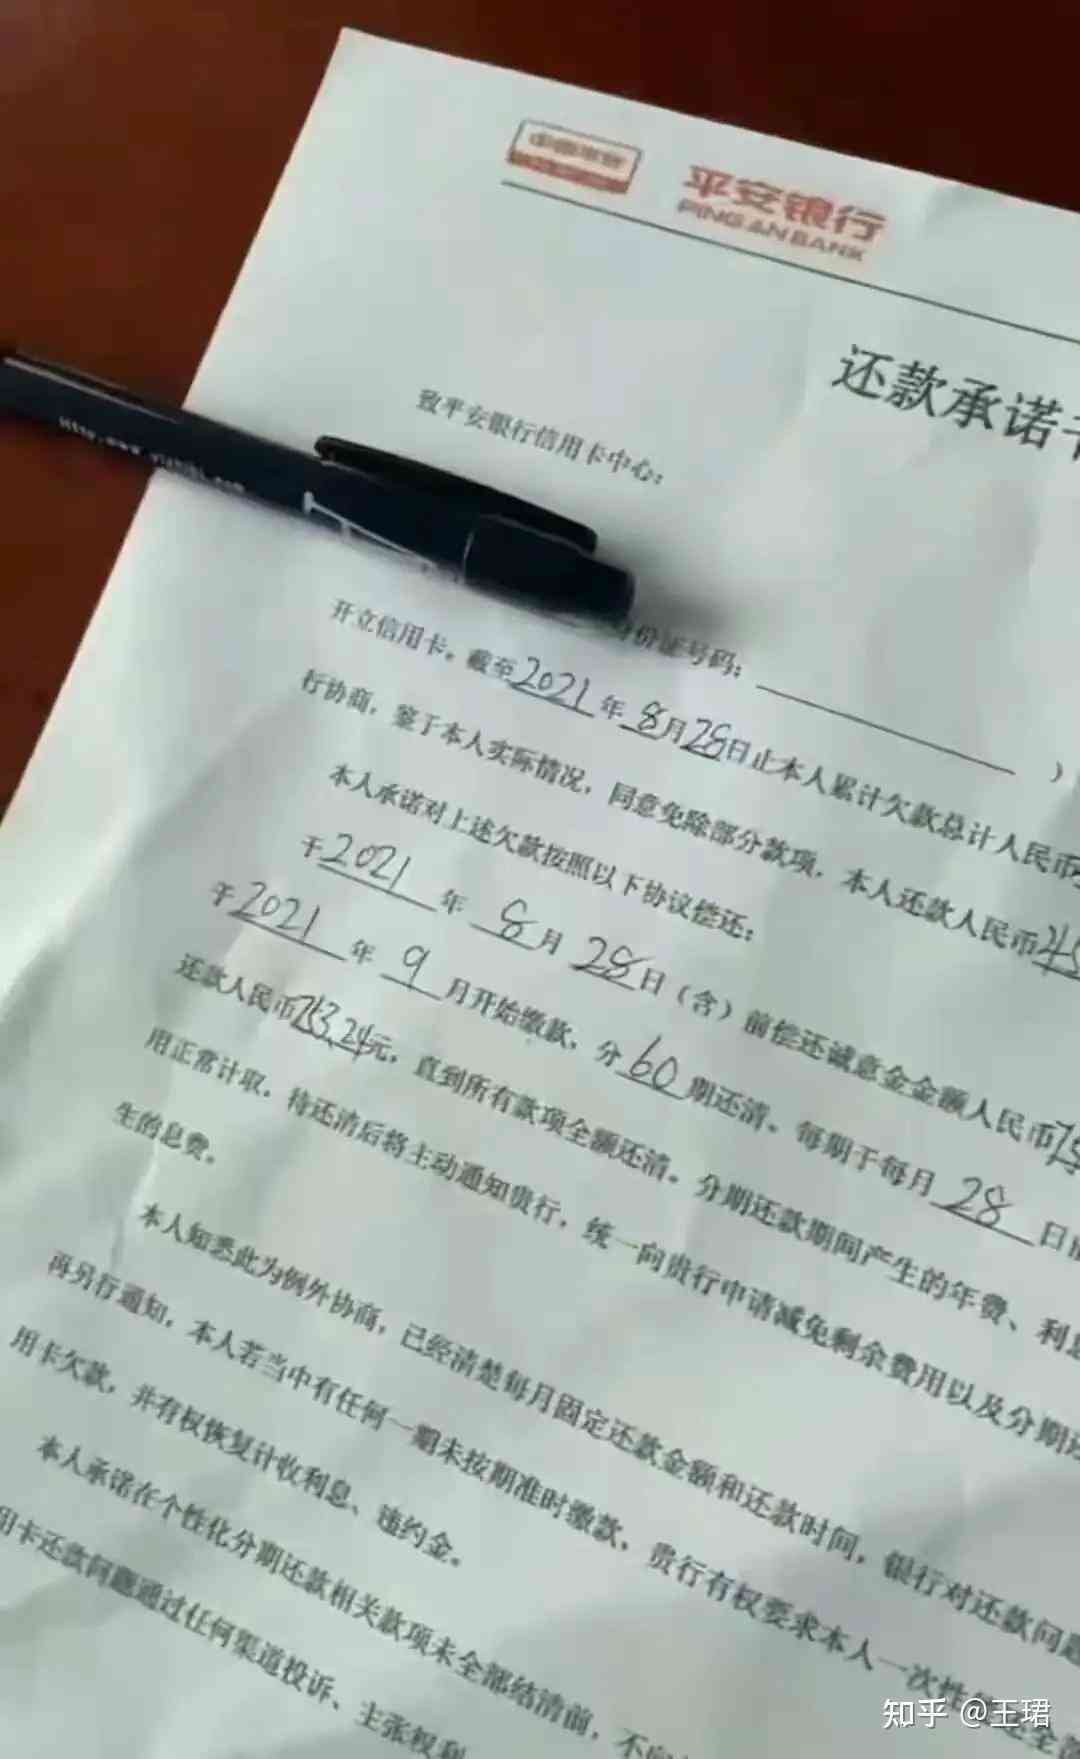 中国平安
平安银行
PING AN BANK
还款承诺
致平安银行信用卡中心:
份证号码:
)
开立信用卡。截至2021年8月28日止本人累计欠款总计人民币
行协商,鉴于本人实际情况,同意免除部分款项,本人还款人民币
本人承诺对上述欠款按照以下协议偿还:
于2021年8月28日(含)前偿还诚意金金额人民币
于2021年9月开始缴款,分60期还清。每期于每月28日
还款人民币元,直到所有款项全额还清。分期还款期间产生的年费、利息
用正常计取,待还清后将主动通知贵行,统一向贵行申请减免剩余费用以及分期还
生的息费。
本人知悉此为例外协商,已经清楚每月固定还款金额和还款时间,银行对还款问题
再另行通知,本人若当中有任何一期未按期准时缴款,贵行有权要求本人一次性
用卡欠款,并有权恢复计收利息、违约金。
本人承诺在个性化分期还款相关款项未全部结清前,不
用卡还款问题通过任何渠道投诉、主张权利
知乎 @王珺